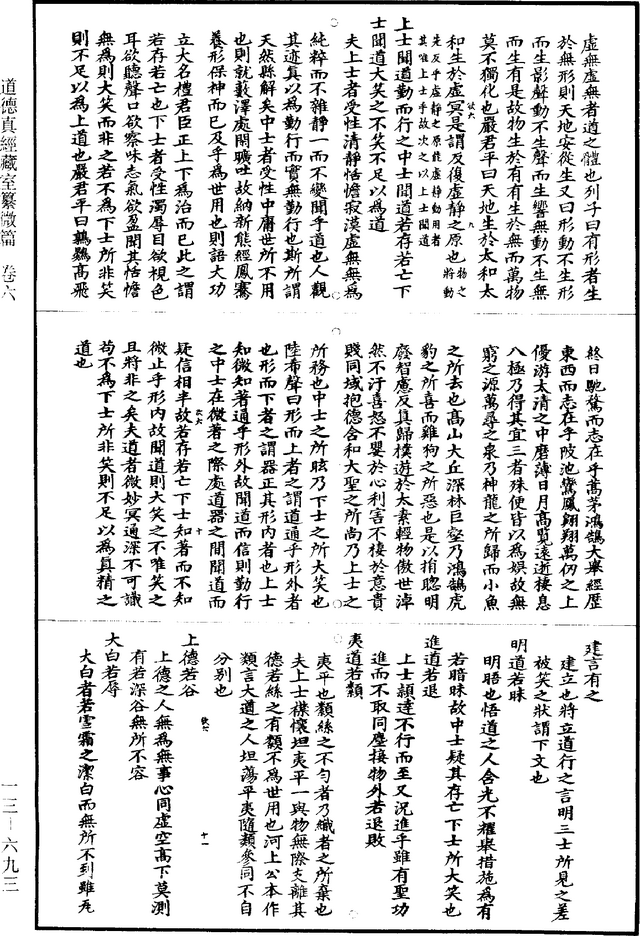 虛無虛無者道之體也列子曰有形者生
於無形則天地安從生又曰形動不生形
而生影聲動不生聲而生響無動不生無
而生有是故物生於有有生於無而萬物
莫不獨化也嚴君平曰天地生於太和太
和生於虛冥是謂反復虛靜之原也物之將動
先反乎虛靜之原能虛靜動用者
其唯上士乎故次之以上士聞道
上士聞道勤而行之中士聞道若存若亡下
士聞道大笑之不笑不足以為道
夫上士者受性清靜恬憺寂漠虛無無為
純粹而不雜靜一而不變聞乎道也人觀
其迹真以為勤行而實無勤行也斯所謂
天然縣解矣中士者受性中庸世所不用
也則就藪澤處閑曠吐故納新熊經鳳騫
養形保神而已及乎為世用也則語大功
立大名禮君臣正上下為治而已此之謂
若存若亡也下士者受性濁辱目欲視色
耳欲聽聲口欲察味志氣欲盈聞其恬憺
無為則大笑而非之若不為下士所非笑
則不足以為上道也嚴君平曰鶉鷃高飛
終日馳騖而志在乎蒿茅鴻鵠大舉經歷
東西而志在乎陂池鸞鳳翱翔萬仞之上
優游太清之中磨薄日月高覽遠逝棲息
八極乃得其宜三者殊便皆以為娛故無
窮之源萬尋之泉乃神龍之所歸而小魚
之所去也高山大丘深林巨壑乃鴻鵠虎
豹之所喜而雞狗之所惡也是以捐聰明
廢智慮反真歸樸遊於太素輕物傲世淖
然不汙喜怒不嬰於心利害不棲於意貴
賤同域抱德含和大聖之所尚乃上士之
所務也中士之所眩乃下士之所大笑也
陸希聲曰形而上者之謂道通乎形外者
也形而下者之謂器正其形內者也上士
知微知著通乎形外故聞道而信則勤行
之中士在微著之際處道器之間聞道而
疑信相半故若存若亡下士知著而不知
微止乎形內故聞道則大笑之不唯笑之
且將非之矣夫道者微妙冥通深不可識
苟不為下士所非笑則不足以為真精之
道也
建言有之
建立也將立道行之言明三士所見之差
被笑之狀謂下文也
明道若昧
明晤也悟道之人含光不耀舉措施為有
若暗昧故中士疑其存亡下士所大笑也
進道若退
上士頴達不行而至又況進乎雖有聖功
進而不取同塵接物外若退敗
夷道若纇
夷平也纇絲之不勻者乃織者之所棄也
夫上士襟懷坦夷平一與物無際支離其
德若絲之有纇不為世用也河上公本作
類言大道之人坦蕩平夷隨類參同不自
分別也
上德若谷
上德之人無為無事心同虛空高下莫測
有若深谷無所不容
大白若辱
大白者若雪霜之潔白而無所不到雖㞐
道德真經藏室纂微篇 卷六
一三—六九三